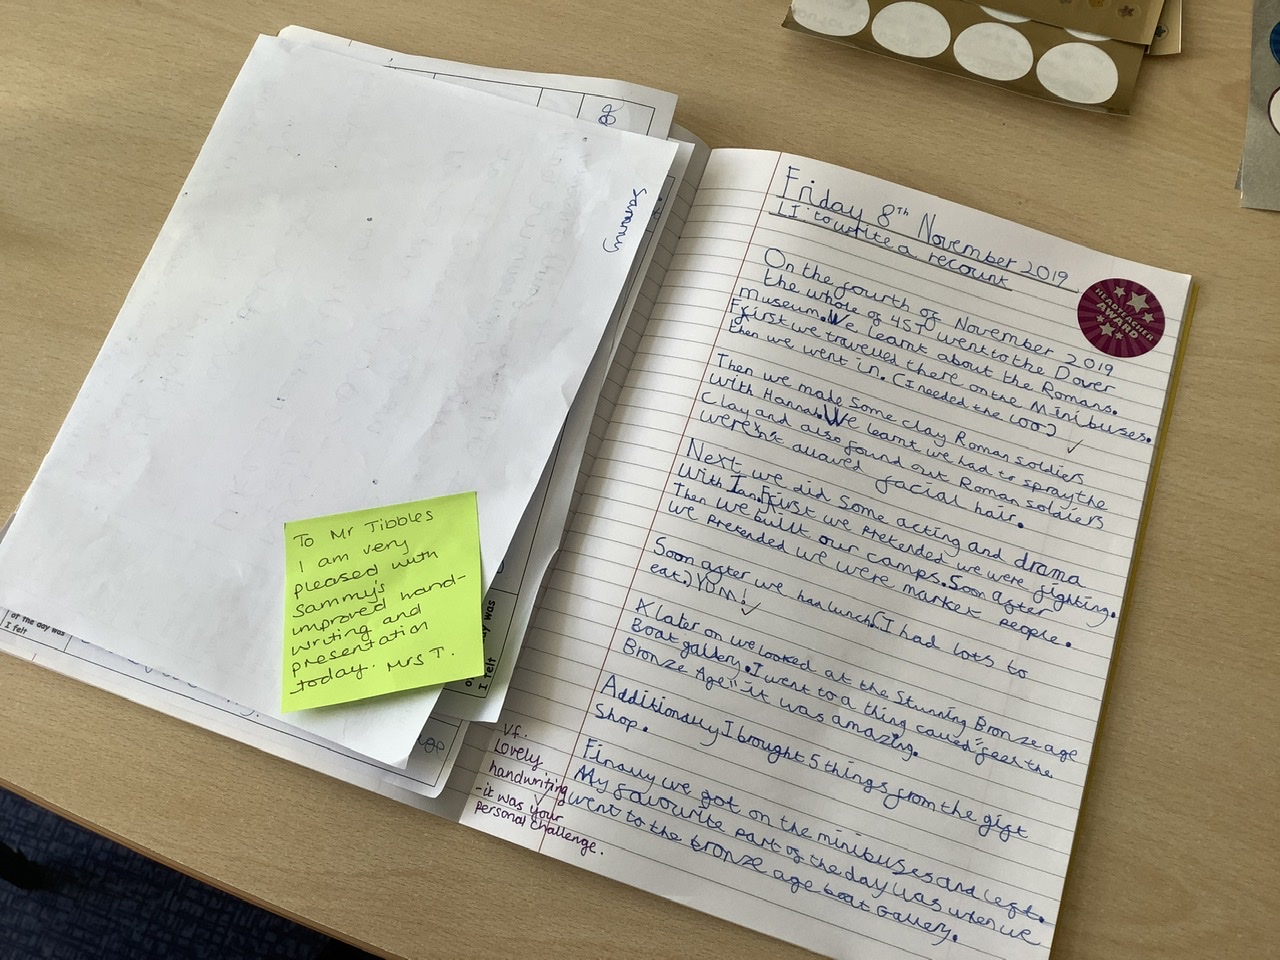 Sammy
To Mr Tibbles
I am very
pleased with
Sammy's
improved hand-
writing and
presentation
today. Mrs T.
of the day was
I felt
Friday 8th November 2019
LI to write a recount
HEADTEACHER
AWARD
On the fourth of November 2019
the whole of 4ST went to the Dover
museum. We learnt about the Romans.
First we travelled there on the Minibuses.
then we went in. (I needed the loo)
Then we made some clay Roman soldiers
With Hannah. We learnt we had to spray the
Clay and also found out Roman soldiers
weren't allowed facial hair.
Next we did some acting and drama
With Ian. First we pretended we were fighting.
Then we built our camps. Soon after
we pretended we were market people.
Soon after we had lunch. (I had lots to
eat.) YUM!
A later on we looked at the Stunning Bronze age
Boat gallery. I went to a thing called "feel the
Bronze Age" it was amazing.
Additionally I brought 5 things from the gift
Shop.
Finally we got on the minibuses and left.
My favourite part of the day was when we
went to the bronze age boat Gallery.
Vf.
Lovely
handwriting
-it was your
personal challenge.